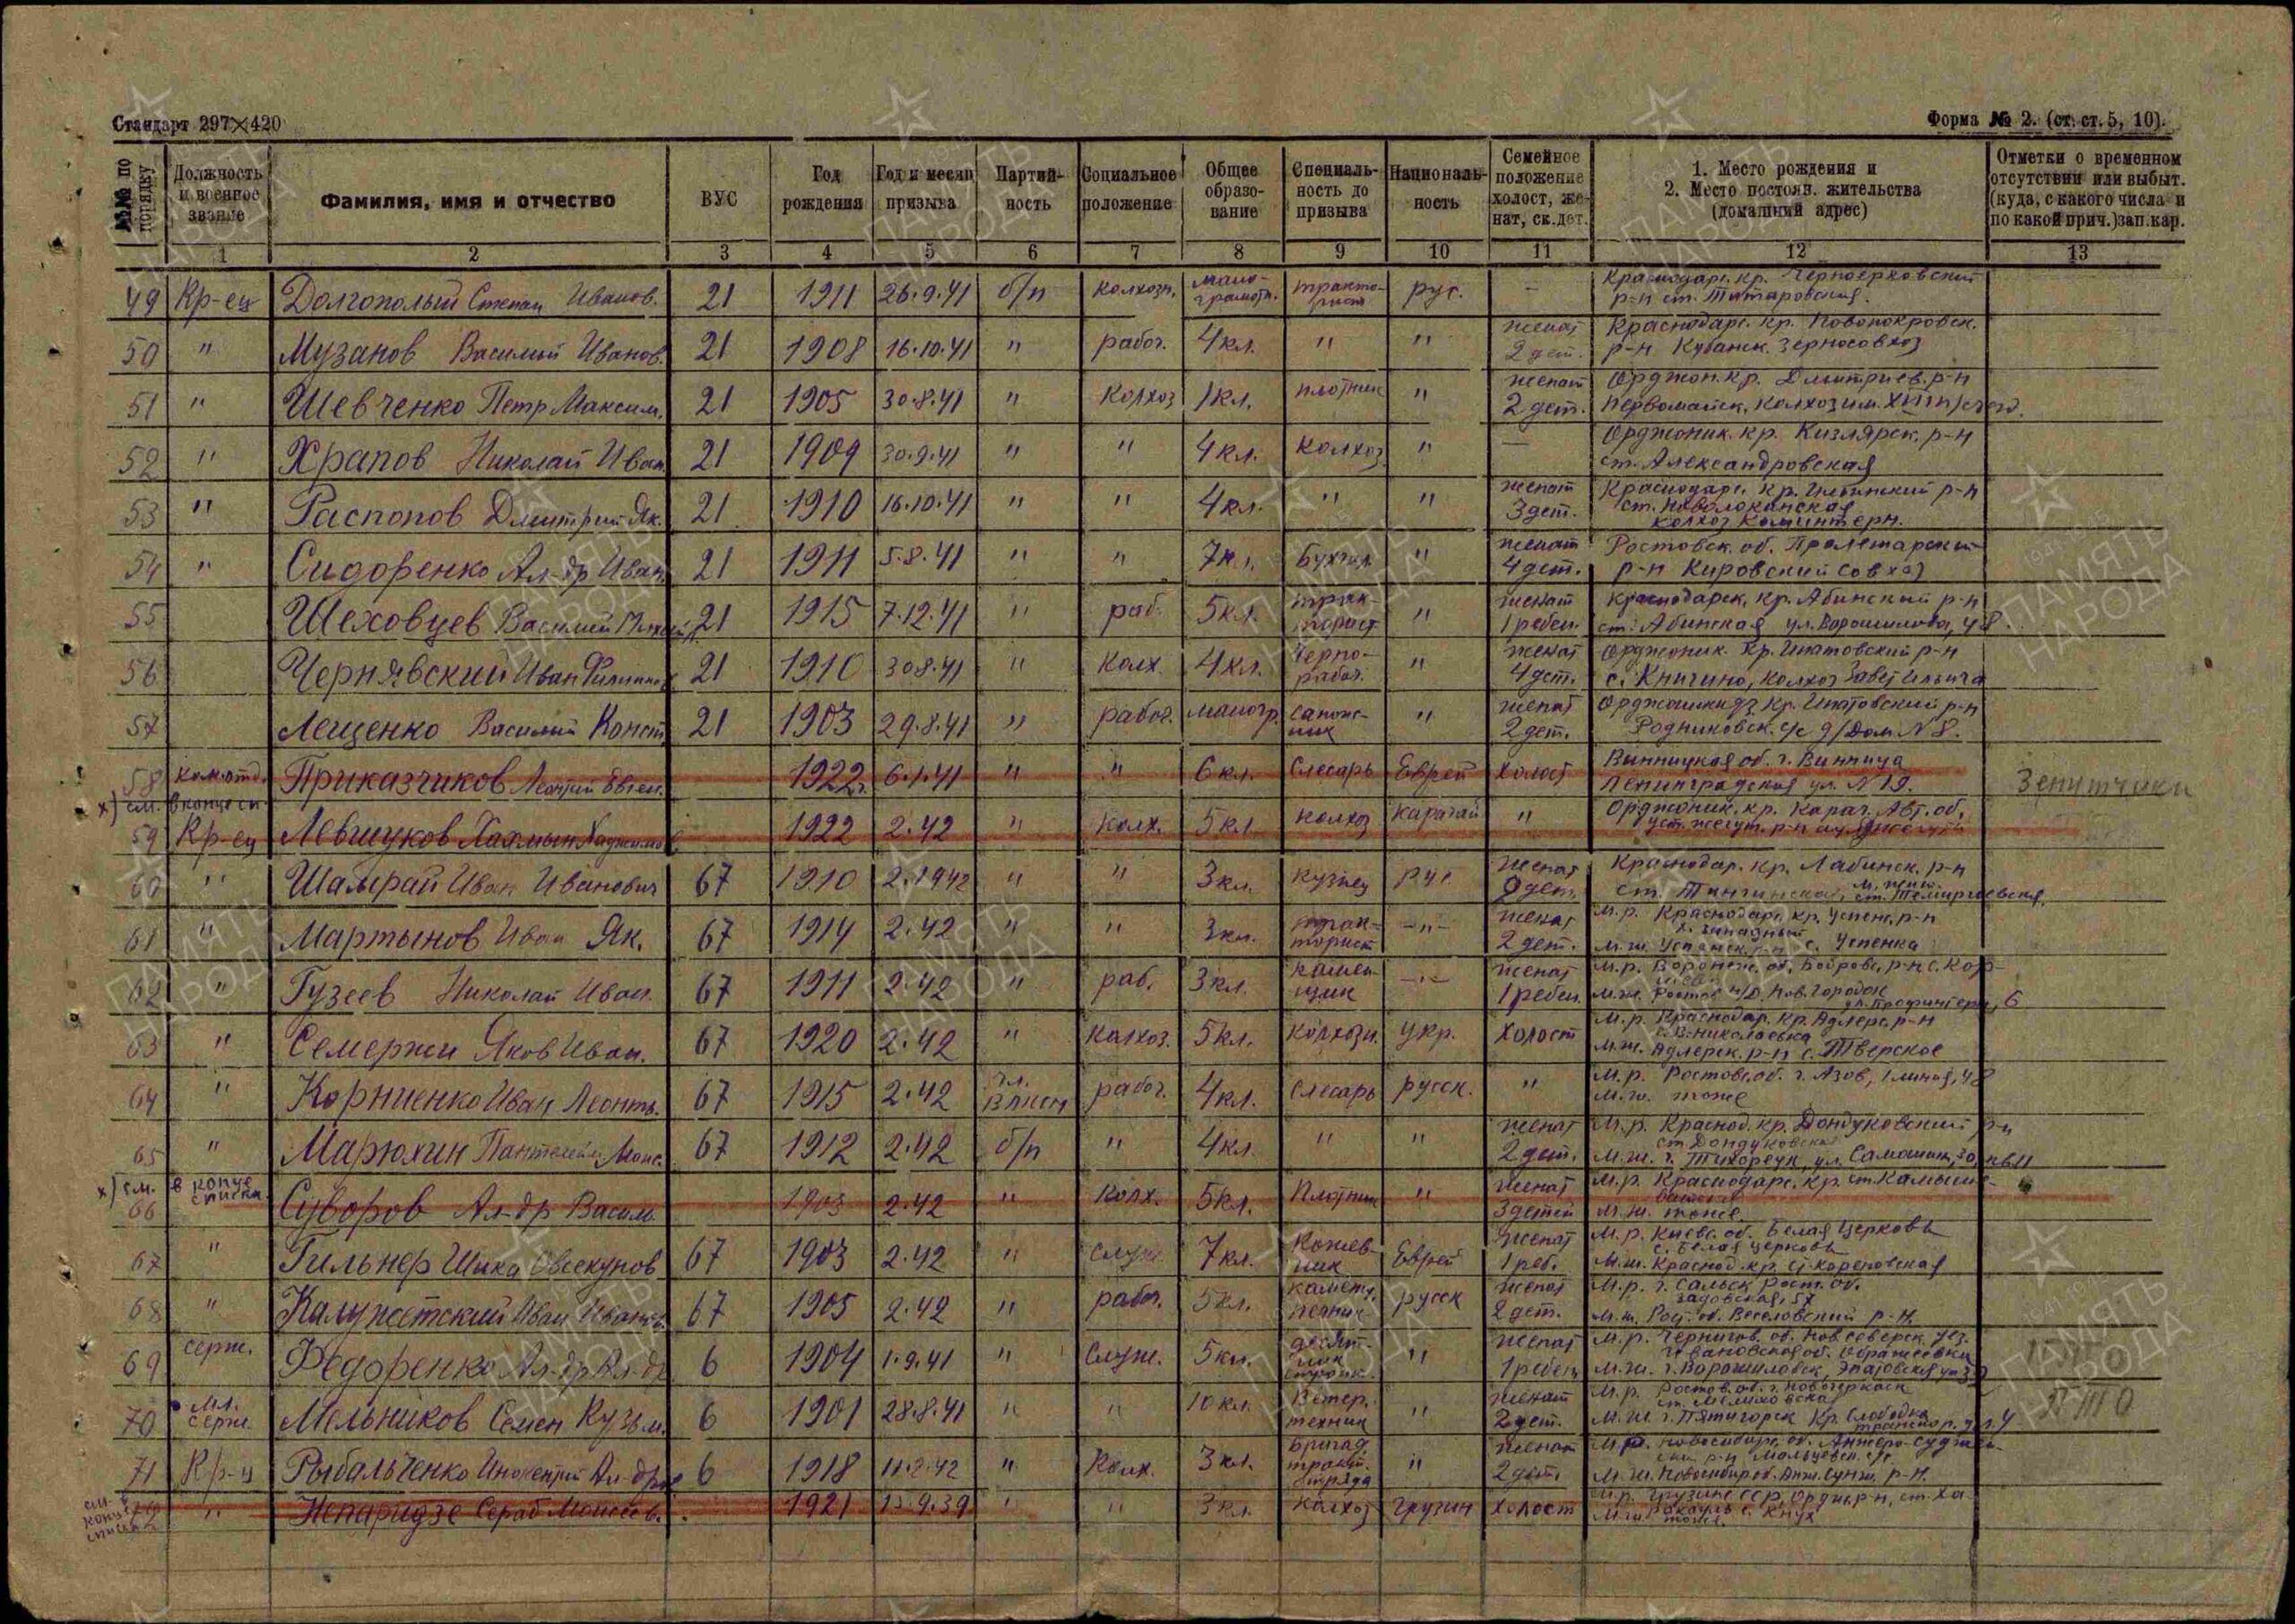 Стандарт 297×420
Форма № 2. (ст. ст. 5, 10).
№№ по порядку
Должность и военное звание
Фамилия, имя и отчество
ВУС
Год рождения
Год и месяц призыва
Партийность
Социальное положение
Общее образование
Специальность до призыва
Национальность
Семейное положение холост, женат, ск. дет.
1. Место рождения и
2. Место постоян. жительства
(домашний адрес)
Отметки о временном отсутствии или выбыт. (куда, с какого числа и по какой прич.) зап. кар.
1 2 3 4 5 6 7 8 9 10 11 12 13
49 Кр-ец Долгополый Степан Иванов. 21 1911 26.9.41 б/п колхозн. малограмотн. тракторист рус. – Краснодарс. кр. Черноерковский
р-н ст. Титаровская.
50 " Музанов Василий Иванов. 21 1908 16.10.41 " рабоч. 4 кл. " " женат 2 дет. Краснодарс. кр. Новопокровск.
р-н Кубанск. зерносовхоз
51 " Шевченко Петр Максим. 21 1905 30.8.41 " колхоз 1 кл. плотник " женат 2 дет. Орджон. кр. Дмитриев. р-н
Первомайск. колхоз им.
52 " Храпов Николай Иван. 21 1909 30.9.41 " " 4 кл. колхоз " – Орджоник. кр. Кизлярск. р-н
ст. Александровская
53 " Распопов Дмитрий Як. 21 1910 16.10.41 " " 4 кл. " " женат 3 дет. Краснодарс. кр. р-н
ст.
колхоз Коминтерн.
54 " Сидоренко Ал-др Иван. 21 1911 5.8.41 " " 7 кл. Бухгал. " женат 4 дет. Ростовск. об. Пролетарский
р-н Кировский совхоз
55 Шеховцев Василий 21 1915 7.12.41 " раб. 5 кл. тракторист " женат 1 ребен. Краснодарск. кр. Абинский р-н
ст. Абинская ул. Ворошилова, 48.
56 Чернявский Иван Филиппов. 21 1910 30.8.41 " колх. 4 кл. Чернорабоч. " женат 4 дет. Орджоник. кр. Ипатовский р-н
с. Кничино, колхоз Завет Ильича
57 Лещенко Василий Конст. 21 1903 29.8.41 " рабоч. малогр. сапожник " женат 2 дет. Орджоникидз. кр. Ипатовский р-н
Родниковск. с/с д/Дом № 8.
58 ком. отд. Приказчиков Леонтий Евген. 1922 г. 6.1.41 " " 6 кл. Слесарь Еврей холост Винницкая об. г. Винница
Ленинградская ул. № 19. Зенитчики
х) см. в конце сп.
59 Кр-ец Левшуков 1922 2.42 " колх. 5 кл. колхоз карачай " Орджоник. кр. Карач. Авт. об.
60 " Шамрай Иван Иванович 67 1910 2.1942 " " 3 кл. кузнец рус. женат дет. Краснодар. кр. Лабинск. р-н
ст. Тенгинская, м. жит. ст. Темиргоевская.
61 " Мартынов Иван Як. 67 1914 2.42 " " 3 кл. тракторист –"– женат 2 дет. м.р. Краснодарс. кр. Успенс. р-н
х. Западный
м.ж. Успенск. р-н с. Успенка
62 " Гузеев Николай Иван. 67 1911 2.42 " раб. 3 кл. каменщик –"– женат 1 ребен. м.р. Воронеж. об. Бобровс. р-н с.
м.ж. Ростов н/Д. Нов. городок
ул. Профинтерн, 6
63 " Семержи Яков Иван. 67 1920 2.42 " колхоз. 5 кл. колхозн. укр. холост м.р. Краснодар. кр. Адлерс. р-н
с. В-Николаевка
м.ж. Адлерск. р-н с. Тверское
64 " Корниенко Иван Леонть. 67 1915 2.42 чл. ВЛКСМ рабоч. 4 кл. Слесарь русск. " м.р. Ростовс. об. г. Азов, 1 линия, 48
м.ж. тоже
65 " Марюхин Пантелей Моис. 67 1912 2.42 б/п " 4 кл. " " женат 2 дет. м.р. Краснод. кр. Дондуковский р-н
ст. Дондуковская
м.ж. г. Тихорецк, ул.
х) см. в конце списка
66 Суворов Ал-др Василь. 1903 2.42 " колх. 5 кл. Плотник " женат 3 детей м.р. Краснодарс. кр. ст. Камышеватская
м.ж. тоже
67 " Гильнер Шика 67 1903 2.42 " служ. 7 кл. Кожевник Еврей женат 1 реб. м.р. Киевс. об. Белая Церковь
с. Белая Церковь
м.ж. Краснод. кр. ст. Кореновская
68 " Калужетский Иван Иванов. 67 1905 2.42 " рабоч. 5 кл. русск женат 2 дет. м.р. г. Сальск Рост. об.
м.ж. Рост. об. Веселовский р-н.
69 серж. Федоренко Ал-др Ал-др 6 1904 1.9.41 " Служ. 5 кл. десятник строит. " женат 1 ребен м.р. Чернигов. об. Нов Северск. уез.
м.ж. г. Ворошиловск,
70 мл. серж. Мельников Семен Кузьм. 6 1901 28.8.41 " " 10 кл. Ветер. техник " женат 2 дет. м.р. Ростов. об. г. Новочеркасск
ст. Мелиховская
м.ж. г. Пятигорск Кр. Слободка
71 Кр-ц Рыбальченко Инокентий Ал-дров 6 1918 11.2.42 " Колх. 3 кл. Бригад. тракт. отряда " женат 2 дет. м.р. Новосибирс. об. Анжеро-Суджен-
ский р-н с/с.
м.ж. Новосибир. об. р-н.
см. в конце списка " Непаридзе Сераб Моисеев. 1921 15.9.39 " " 3 кл. колхоз грузин холост м.р. Грузинс. ССР, р-н, ст.
м.ж. тоже.
ПАМЯТЬ НАРОДА